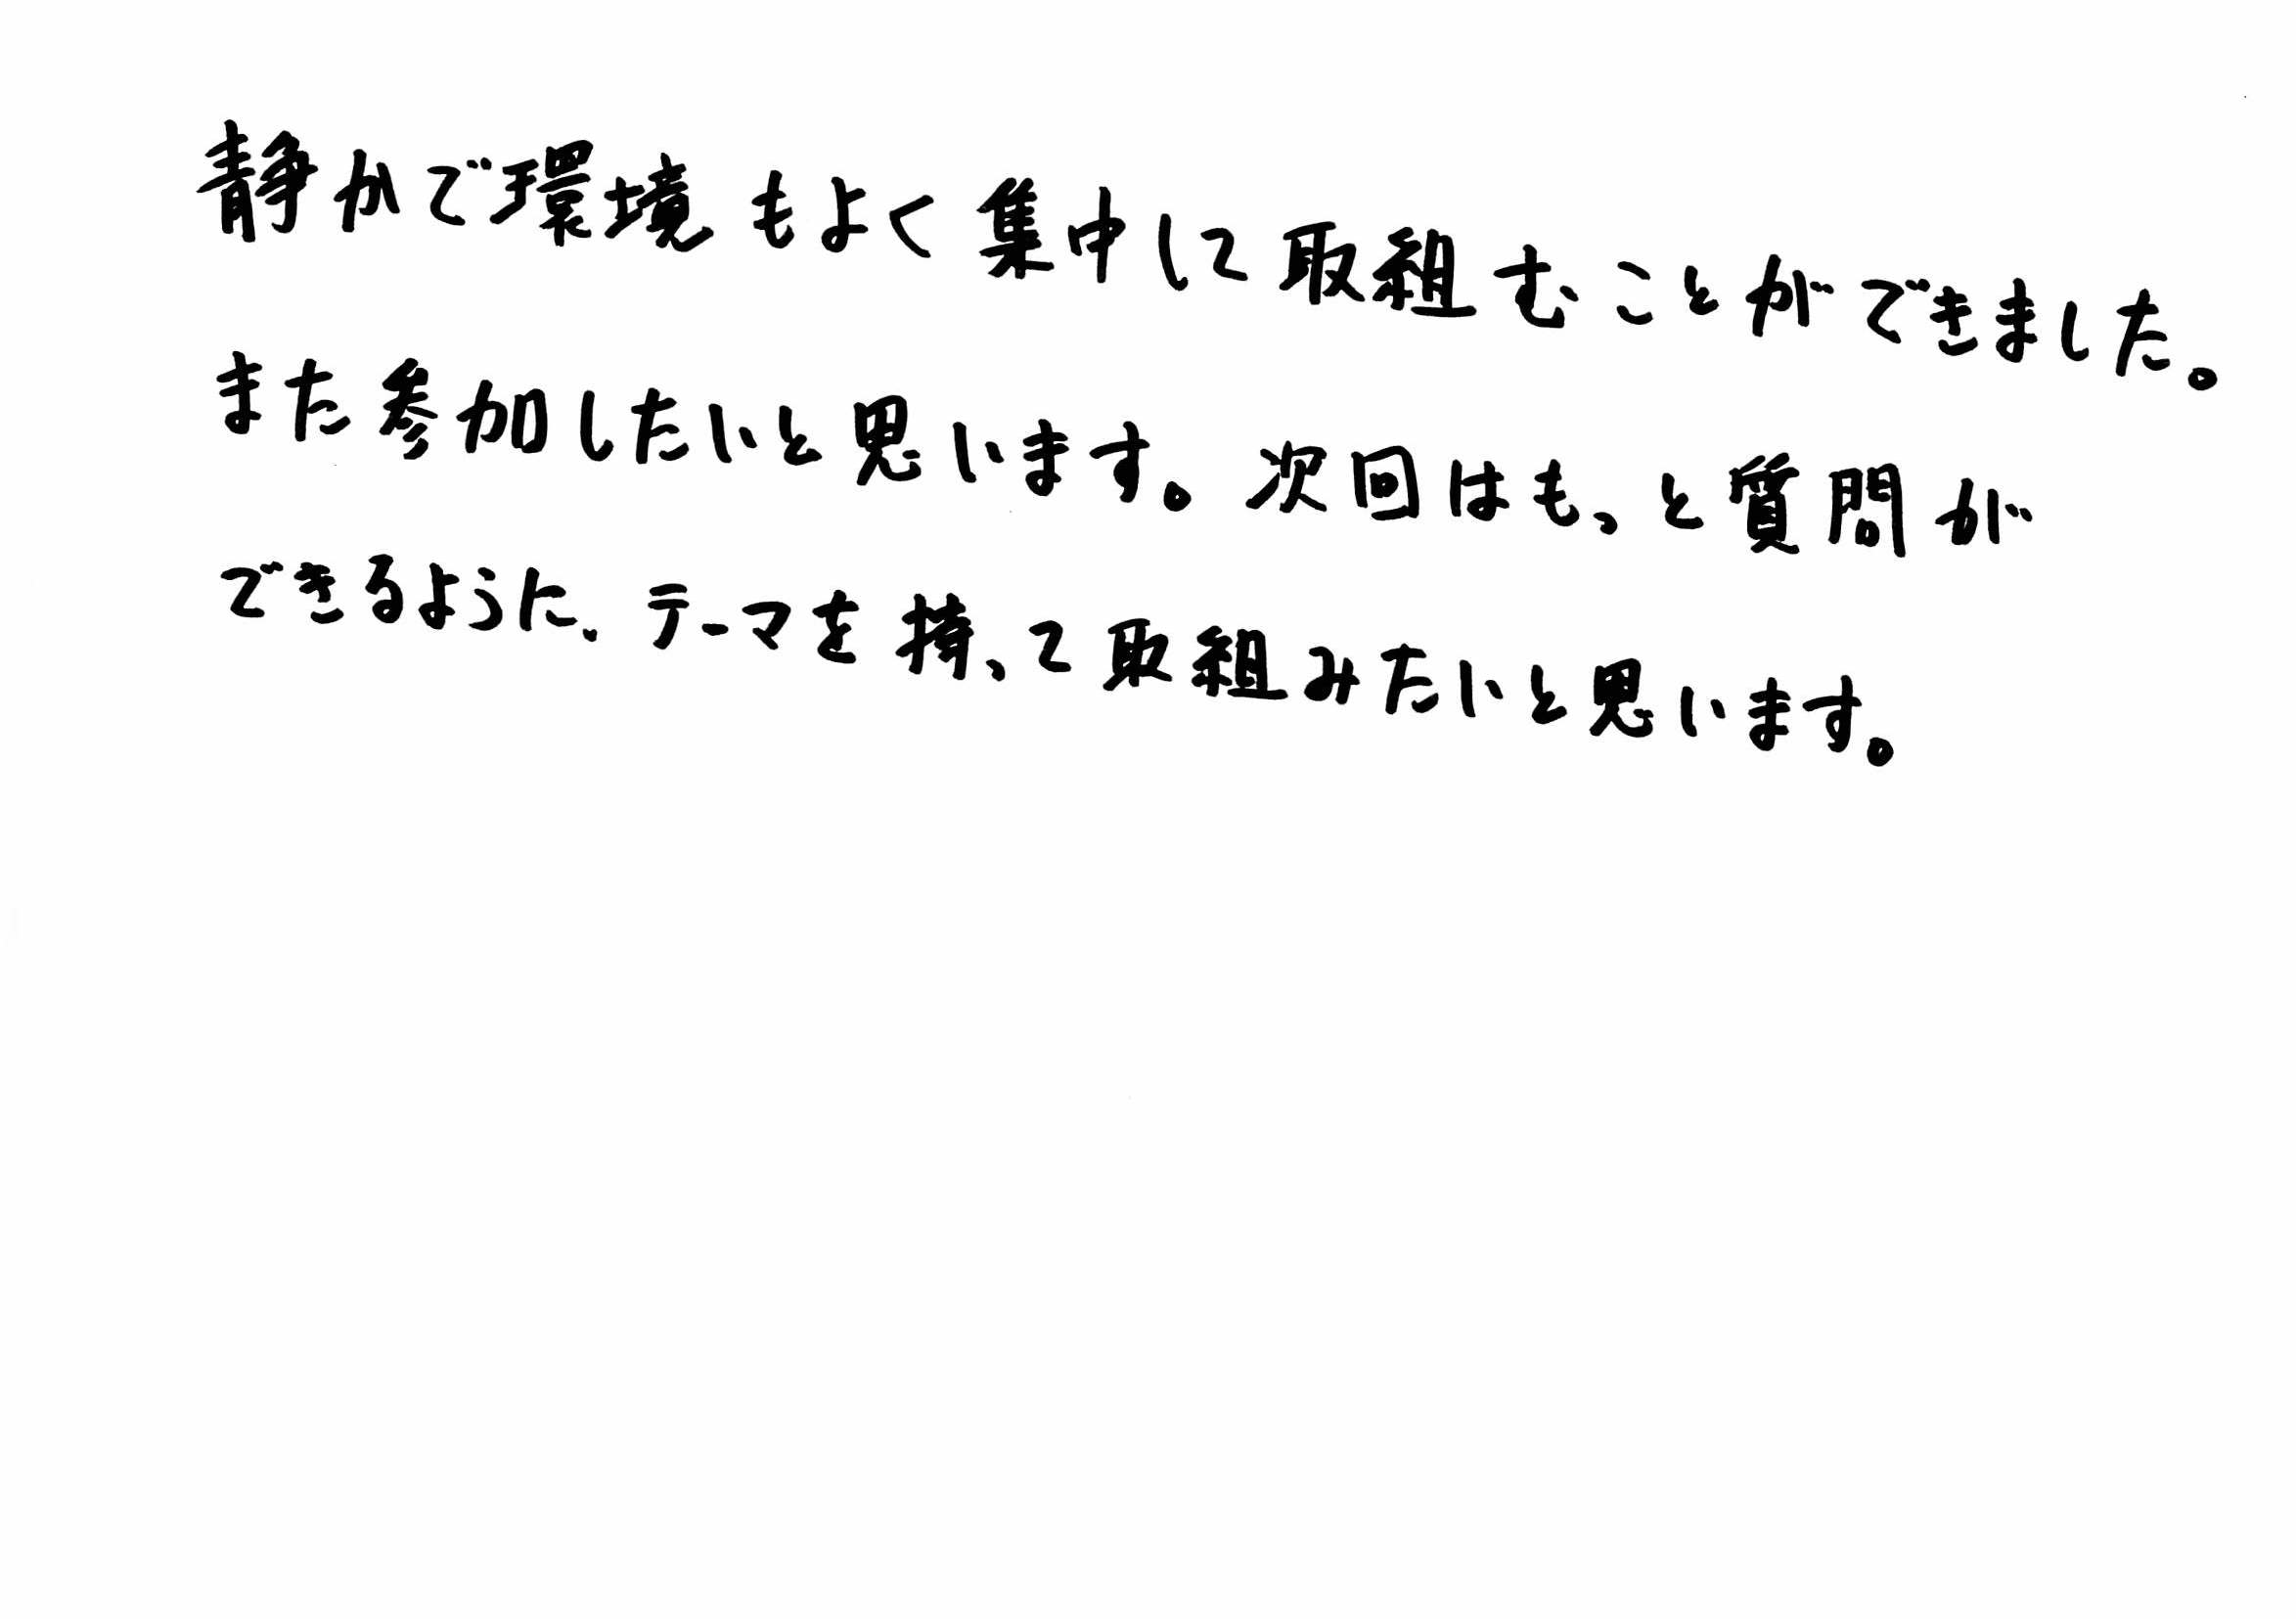 静かで環境もよく集中して取組むことができました。
また参加したいと思います。次回はもっと質問が
できるように、テーマを持って取組みたいと思います。